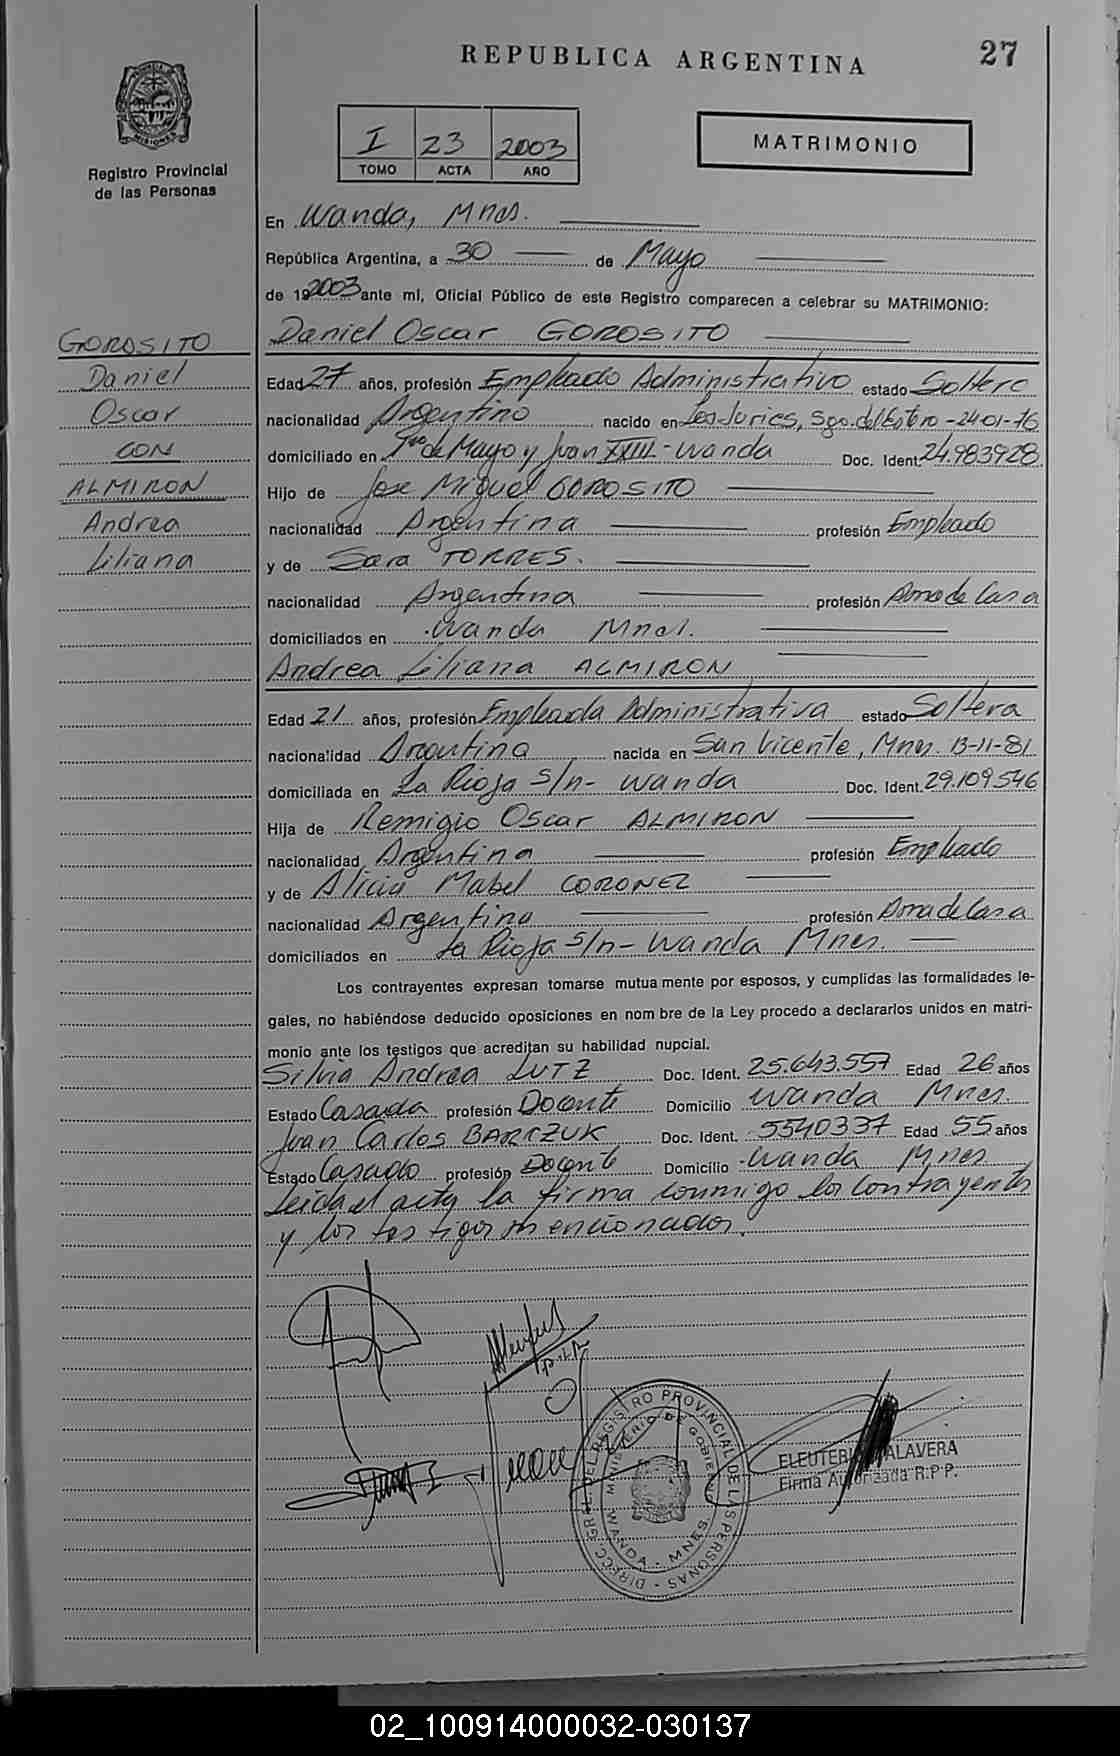 REPUBLICA ARGENTINA
27
Registro Provincial
de las Personas
I 23 2003
TOMO ACTA AÑO
MATRIMONIO
GOROSITO
Daniel
Oscar
CON
ALMIRON
Andrea
Liliana
En Wanda, Mnes.
República Argentina, a 30 de Mayo
de 192003 ante mí, Oficial Público de este Registro comparecen a celebrar su MATRIMONIO:
Daniel Oscar GOROSITO
Edad 27 años, profesión Empleado Administrativo estado Soltero
nacionalidad Argentino nacido en Los Juries, Sgo. del Estero - 24-01-76
domiciliado en 1ro de Mayo y Juan XXIII - Wanda Doc. Ident. 24.983928
Hijo de Jose Miguel GOROSITO
nacionalidad Argentina profesión Empleado
y de Sara TORRES.
nacionalidad Argentina profesión Ama de Casa
domiciliados en Wanda Mnes.
Andrea Liliana ALMIRON
Edad 21 años, profesión Empleada Administrativa estado Soltera
nacionalidad Argentina nacida en San Vicente, Mnes. 13-11-81
domiciliada en La Rioja s/n - Wanda Doc. Ident. 29.109546
Hija de Remigio Oscar ALMIRON
nacionalidad Argentina profesión Empleado
y de Alicia Mabel CORONEZ
nacionalidad Argentina profesión Ama de Casa
domiciliados en La Rioja s/n - Wanda Mnes.
Los contrayentes expresan tomarse mutua mente por esposos, y cumplidas las formalidades le-
gales, no habiéndose deducido oposiciones en nom bre de la Ley procedo a declararlos unidos en matri-
monio ante los testigos que acreditan su habilidad nupcial.
Silvia Andrea LUTZ Doc. Ident. 25.643.557 Edad 26 años
Estado Casada profesión Docente Domicilio Wanda Mnes.
Juan Carlos BARCZUK Doc. Ident. 5540337 Edad 55 años
Estado Casado profesión Docente Domicilio Wanda Mnes
Leida el acta la firma conmigo los contrayentes
y los testigos mencionados.
DIRECC. GRAL. DEL REGISTRO PROVINCIAL DE LAS PERSONAS
MINISTERIO DE GOBIERNO
WANDA - MNES.
ELEUTERI ALAVERA
Firma Autorizada R.P.P.
02_100914000032-030137